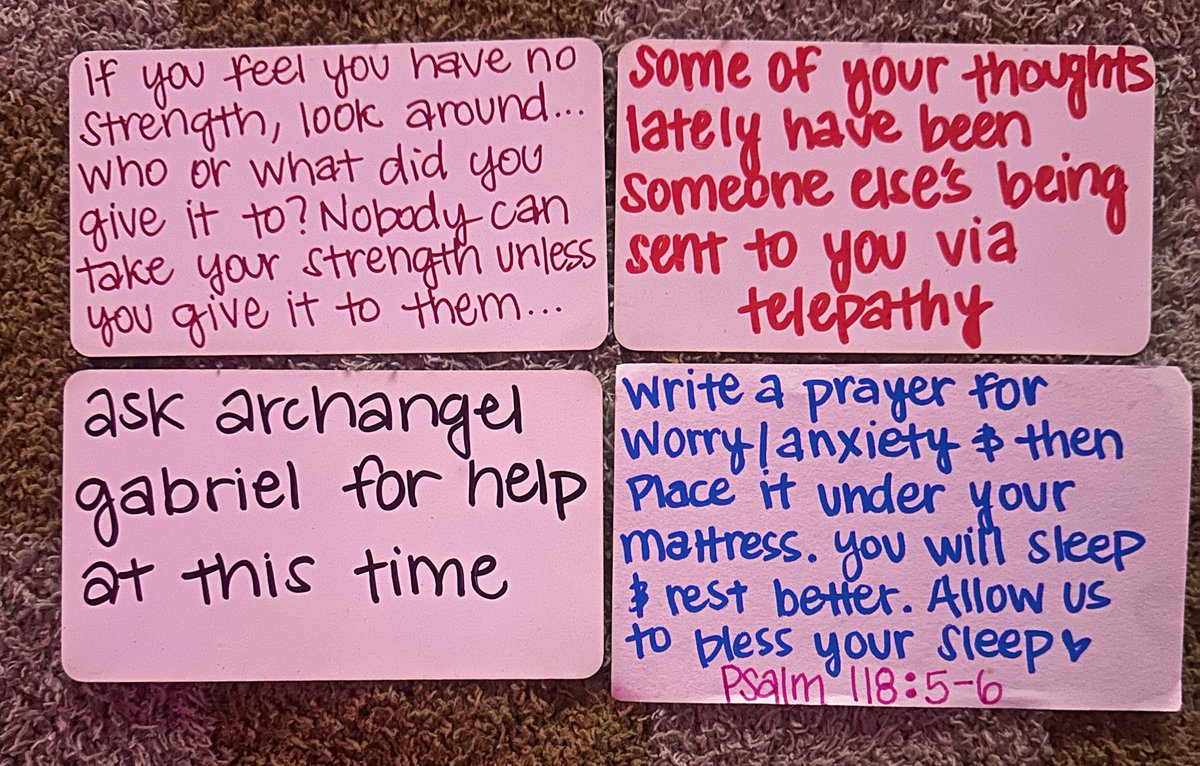 if you feel you have no
strength, look around...
who or what did you
give it to? Nobody can
take your strength unless
you give it to them...
some of your thoughts
lately have been
someone else's being
sent to you via
telepathy
ask archangel
gabriel for help
at this time
write a prayer for
worry/anxiety & then
Place it under your
mattress. you will sleep
& rest better. Allow us
to bless your sleep♥
Psalm 118:5-6